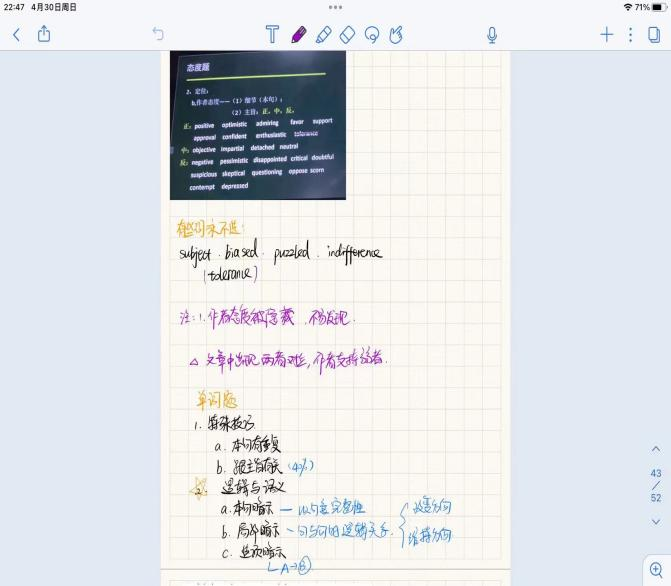 22:47 4月30日周日
71%
态度题
2、定位:
b.作者态度——(1)细节(本句);
(2)主旨: 正、中、反。
正: positive optimistic admiring favor support
approval confident enthusiastic tolerance
中: objective impartial detached neutral
反: negative pessimistic disappointed critical doubtful
suspicious skeptical questioning oppose scorn
contempt depressed
有些词永不选:
subject . biased . puzzled . indifference
(tolerance)
注: 1. 作者态度被隐藏, 不易发现.
△ 文章中出现两者对比, 作者支持后者.
单词题
1. 特殊技巧
a. 本句有重复
b. 跟主旨有关 (40%)
2. 逻辑与语义
a. 本句暗示 — 以句意完整性
b. 局部暗示 — 句与句的逻辑关系
改变方向
维持方向
c. 曲折暗示
A→B
43
/
52